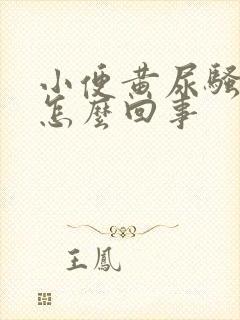 小便黄尿骚
怎麼回事
王鳳